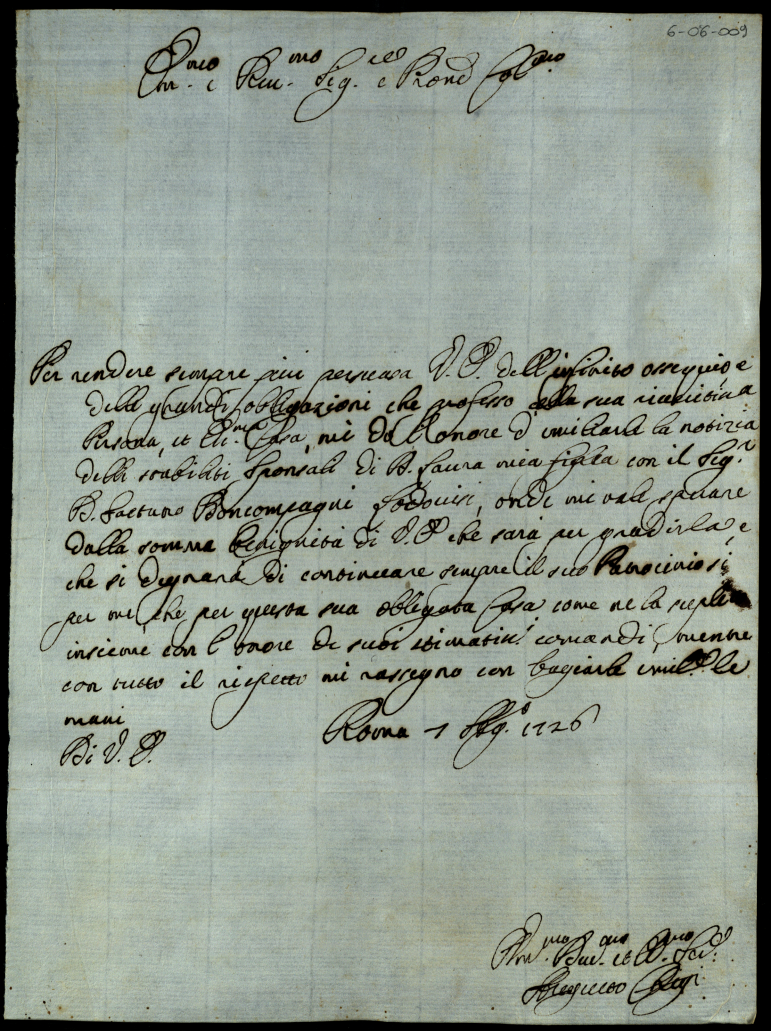 6-06-009
Em.mo e Rev.mo Sig.re e Pron̄e Col.mo
Per rendere sempre piu persuasa V. E. dell'infinito ossequio e
delle grandi obbligazioni che professo alla sua riveritissima
Persona, et Ecc.ma Casa, mi do l'onore d'umiliarle la notizia
delli stabiliti Sponsali di D. Laura mia figlia con il Sig.r
D. Gaetano Boncompagni Lodovisi, onde mi vale sperare
dalla somma benignità di V. E. che sarà per gradirla, e
che si degnarà di continuare sempre il suo Patrocinio si
per me, che per questa sua obligata Casa come ne la suplico
insieme con l'onore de suoi stimatis.i comandi, mentre
con tutto il rispetto mi rassegno con bagiarle umil.te le
mani
Di V. E.
Roma 7 1726
Dev.mo et Obl.mo Ser.
Chigi